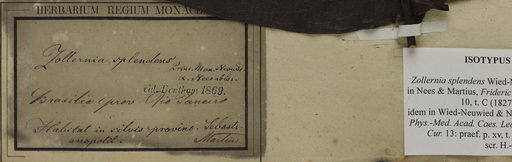 HERBARIUM REGIUM MONAC
Zollernia splendens
Prov. Max. Neuwied
& Nees ab Es.
vid. Benthsp. 1869.
Brasilia prov. Rio Janeiro
Habitat in silvis provinc. Sebasti-
anopolit. Martius
ISOTYPUS
Zollernia splendens Wied-N
in Nees & Martius, Frideric
10, t. C (1827
idem in Wied-Neuwied & N
Phys.-Med. Acad. Caes. Leo
Cur. 13: praef. p. xv, t.
scr. H.-